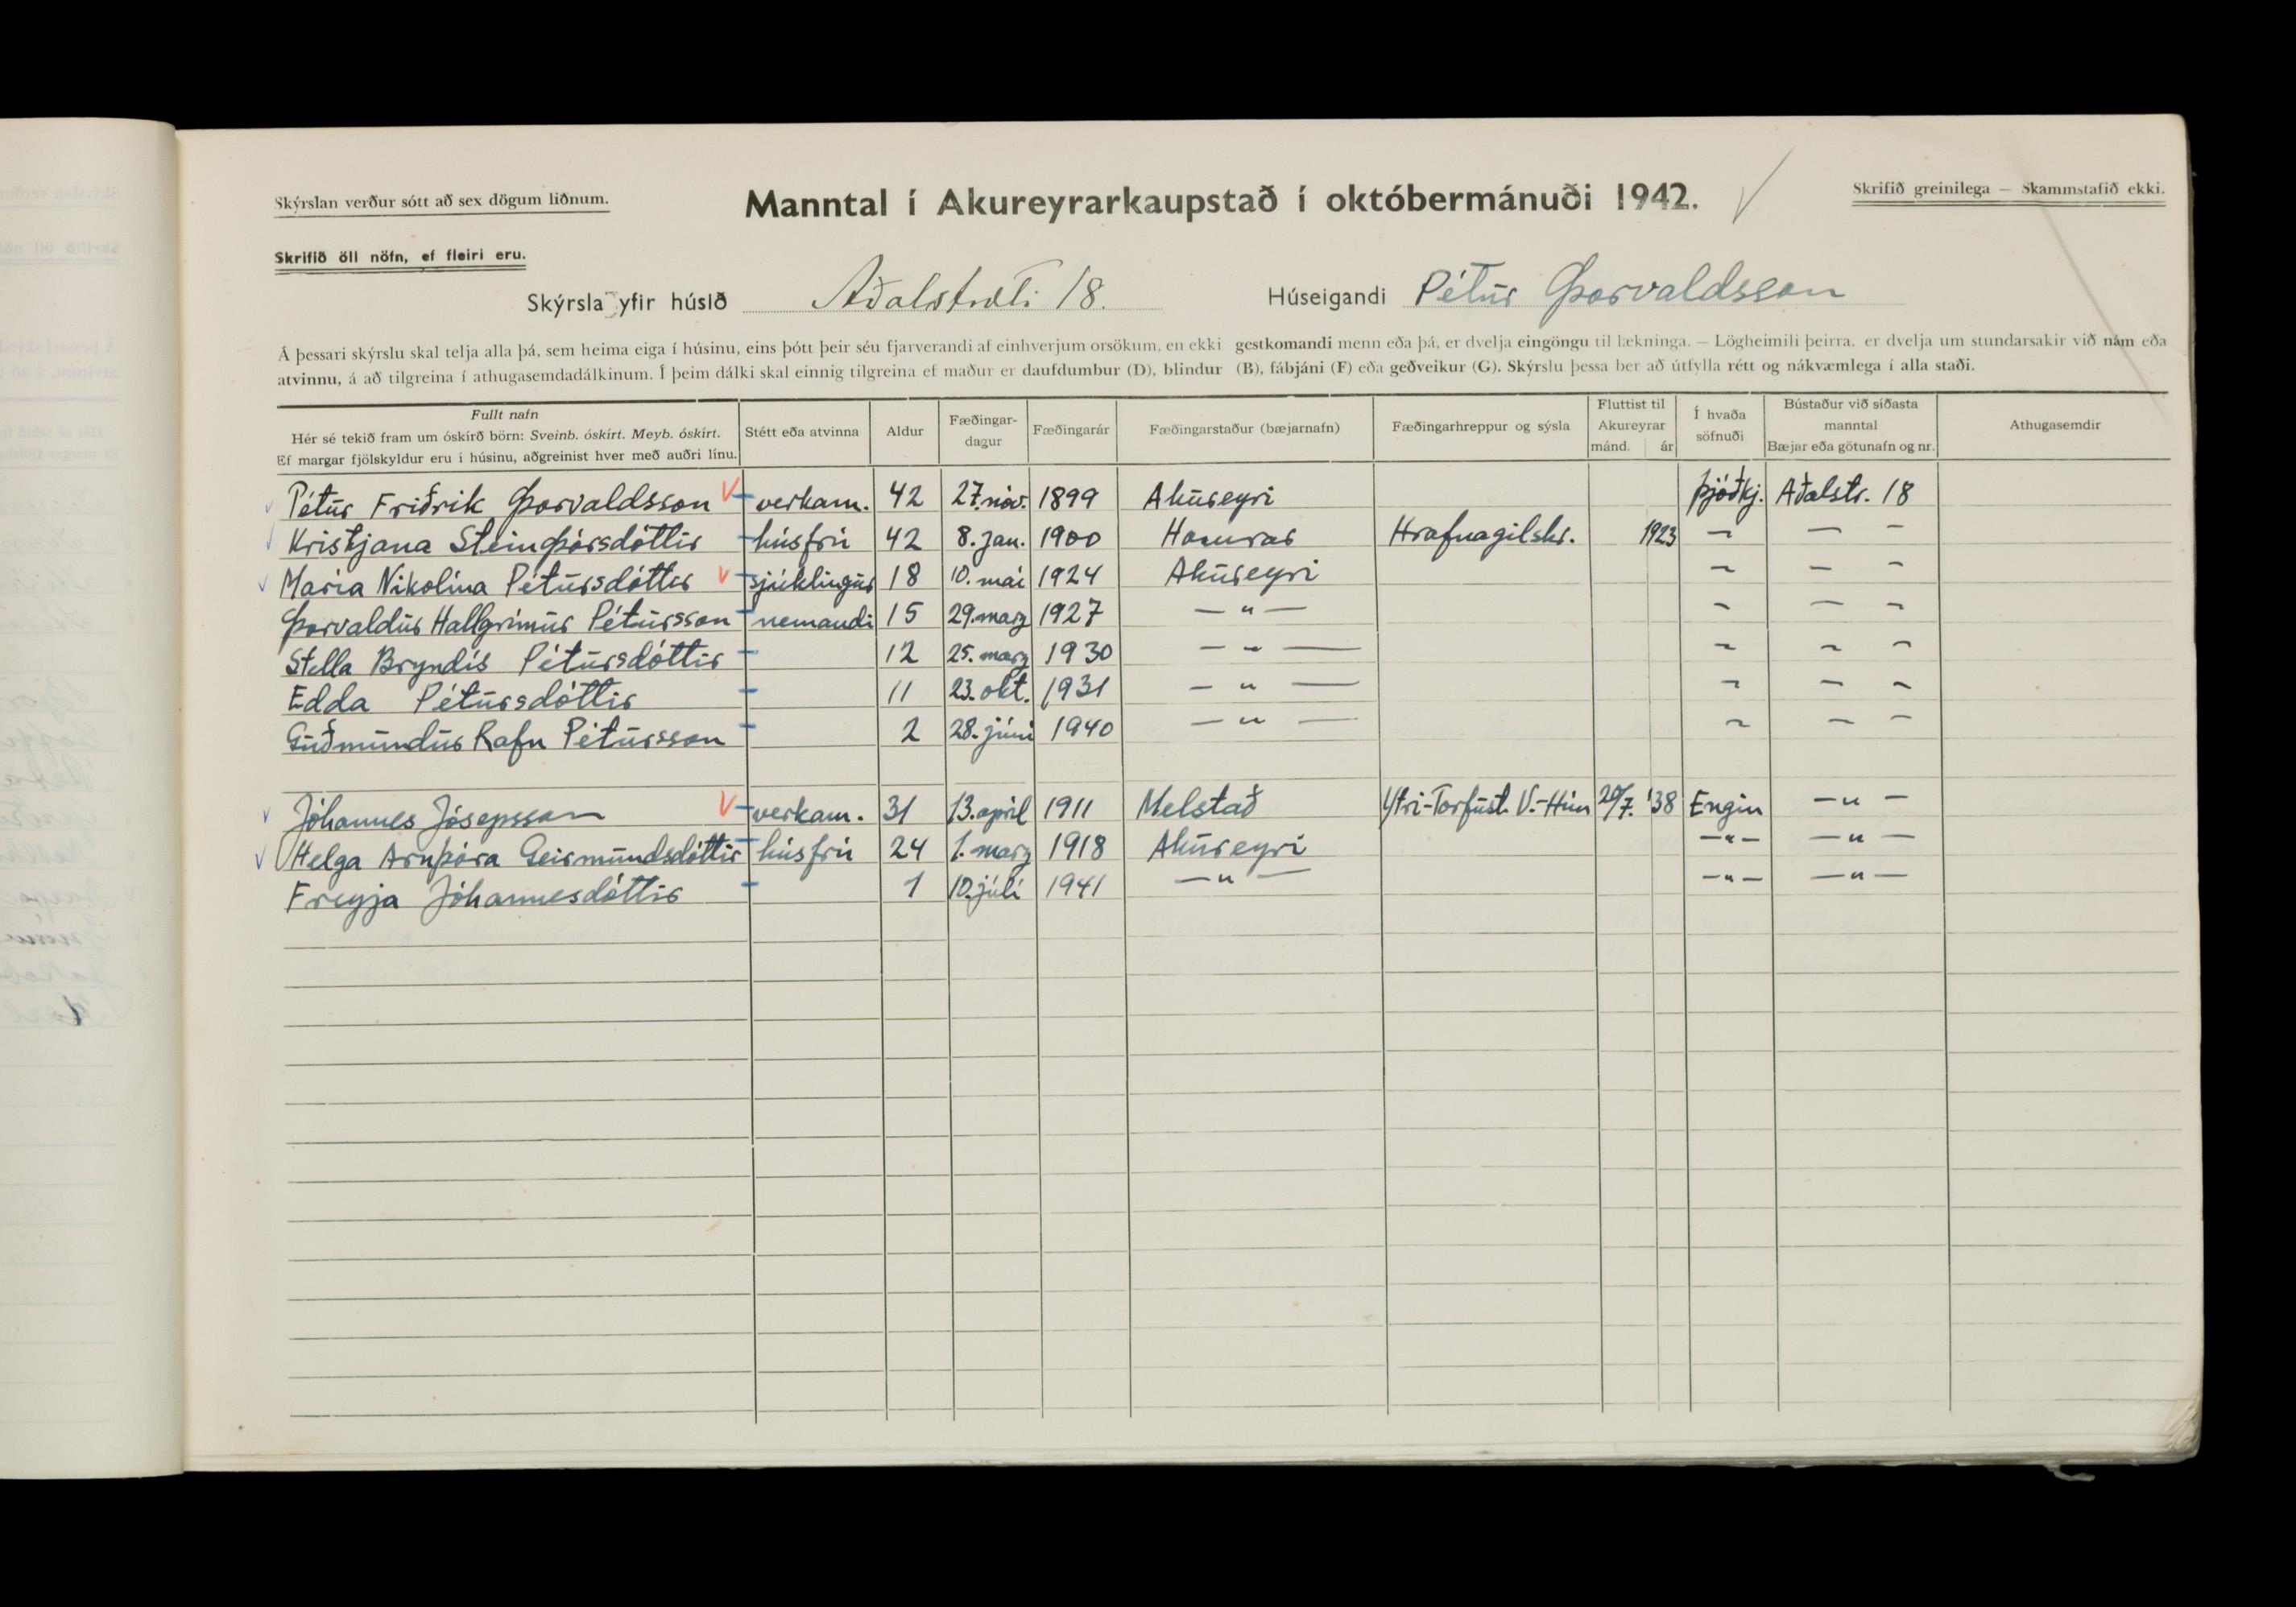 Skýrslan verður sótt að sex dögum liðnum.
Manntal í Akureyrarkaupstað í októbermánuði 1942.
Skrifið greinilega — Skammstafið ekki.
Skrifið öll nöfn, ef fleiri eru.
Skýrsla yfir húsið Aðalstræti 18. Húseigandi Pétur Þorvaldsson
Á þessari skýrslu skal telja alla þá, sem heima eiga í húsinu, eins þótt þeir séu fjarverandi af einhverjum orsökum, en ekki gestkomandi menn eða þá, er dvelja eingöngu til lækninga. — Lögheimili þeirra. er dvelja um stundarsakir við nám eða
atvinnu, á að tilgreina í athugasemdadálkinum. Í þeim dálki skal einnig tilgreina ef maður er daufdumbur (D), blindur (B), fábjáni (F) eða geðveikur (G). Skýrslu þessa ber að útfylla rétt og nákvæmlega í alla staði.
Fullt nafn
Hér sé tekið fram um óskírð börn: Sveinb. óskírt. Meyb. óskírt.
Ef margar fjölskyldur eru í húsinu, aðgreinist hver með auðri línu.
Stétt eða atvinna
Aldur
Fæðingar-
dagur
Fæðingarár
Fæðingarstaður (bæjarnafn)
Fæðingarhreppur og sýsla
Fluttist til
Akureyrar
mánd. ár
Í hvaða
söfnuði
Bústaður við síðasta
manntal
Bæjar eða götunafn og nr.
Athugasemdir
Pétur Friðrik Þorvaldsson verkam. 42 27. nóv. 1899 Akureyri þjóðkj. Aðalstr. 18
Kristjana Steinþórsdóttir húsfrú 42 8. jan. 1900 Hamrar Hrafnagilshr. 1923 — — —
María Nikolína Pétursdóttir sjúklingur 18 10. maí 1924 Akureyri — — —
Þorvaldur Hallgrímur Pétursson nemandi 15 29. marz 1927 — " — — — —
Stella Bryndís Pétursdóttir 12 25. marz 1930 — " — — — —
Edda Pétursdóttir 11 23. okt. 1931 — " — — — —
Guðmundur Rafn Pétursson 2 28. júní 1940 — " — — — —
Jóhannes Jósepsson verkam. 31 13. apríl 1911 Melstað Ytri-Torfust. V.-Hún 20/7. '38 Engin — " —
Helga Arnþóra Geirmundsdóttir húsfrú 24 1. marz 1918 Akureyri — " — — " —
Freyja Jóhannesdóttir 1 10. júlí 1941 — " — — " — — " —